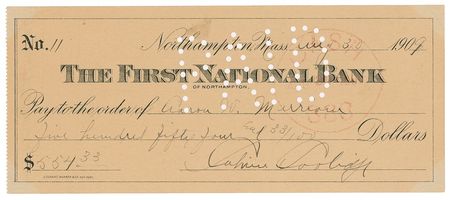 No. 11 Northampton, Mass Aug 30 1909
THE FIRST NATIONAL BANK
OF NORTHAMPTON
Pay to the order of Aaron
Five hundred fifty four and 33/100 Dollars
$ 554.33 Calvin Coolidge